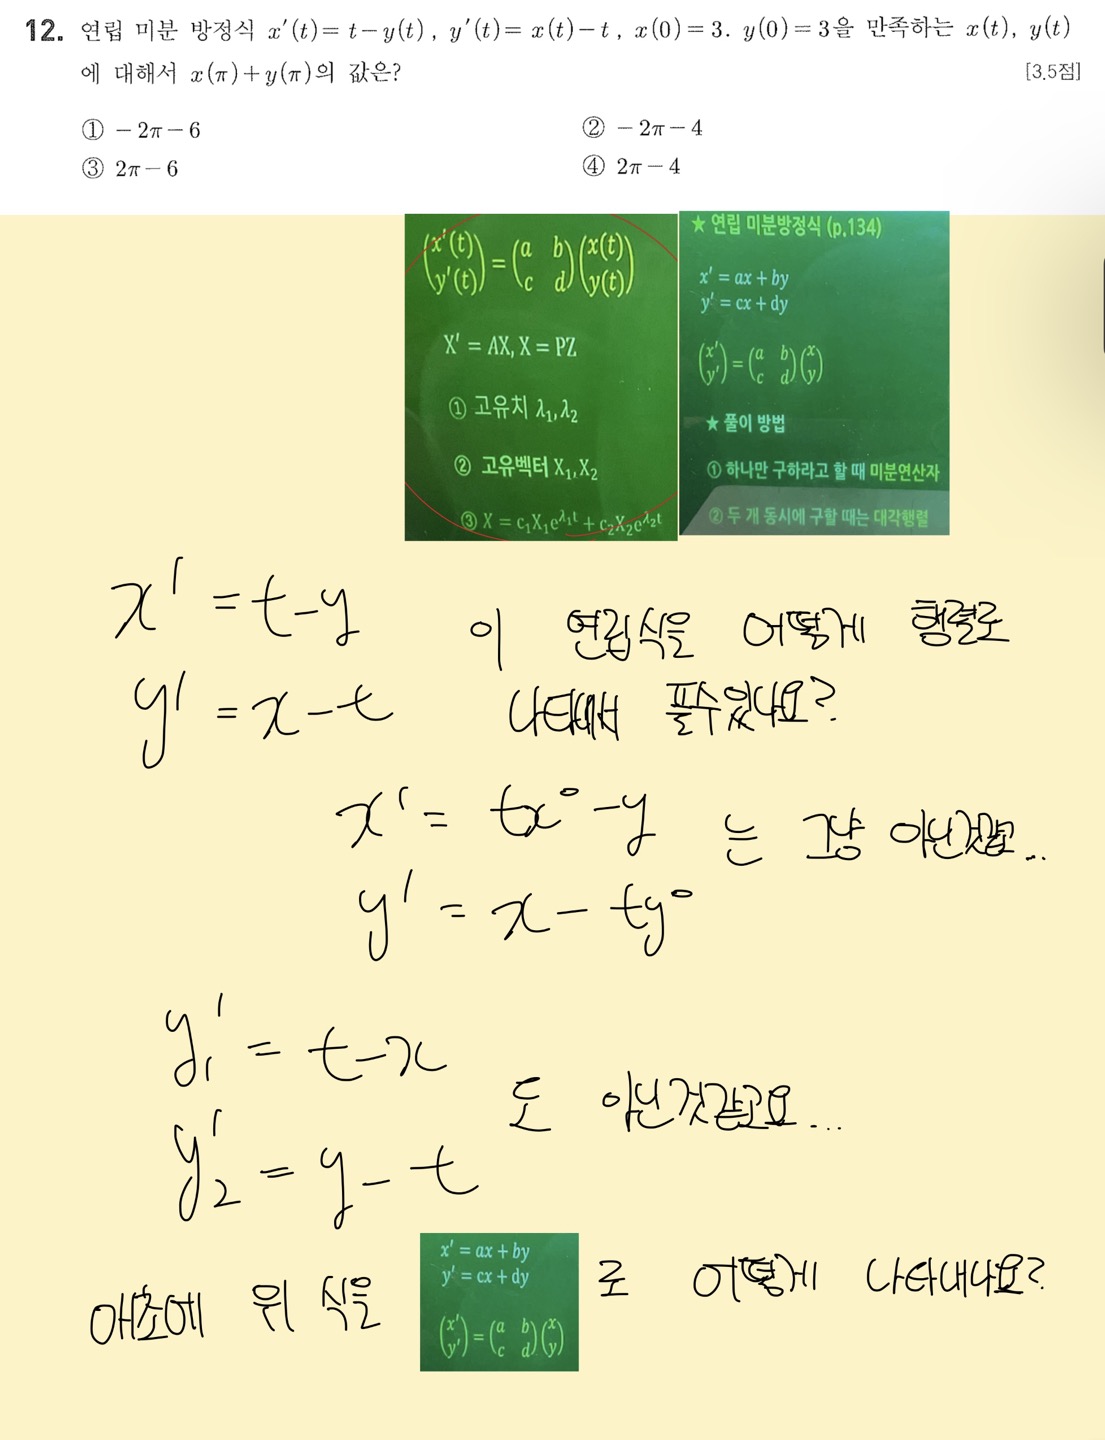 12. 연립 미분 방정식 x′(t)= t−y(t), y′(t)= x(t)−t, x(0)=3. y(0)=3을 만족하는 x(t), y(t)
에 대해서 x(π)+y(π)의 값은? [3.5점]
① −2π−6 ② −2π−4
③ 2π−6 ④ 2π−4
(x′(t) y′(t)) = (a b c d)(x(t) y(t))
X′ = AX, X = PZ
① 고유치 λ₁,λ₂
② 고유벡터 X₁,X₂
③ X = c₁X₁e^λ₁t + c₂X₂e^λ₂t
★ 연립 미분방정식 (p.134)
x′ = ax + by
y′ = cx + dy
(x′ y′) = (a b c d)(x y)
★ 풀이 방법
① 하나만 구하라고 할 때 미분연산자
② 두 개 동시에 구할 때는 대각행렬
x′ = t−y
y′ = x−t
이 연립식을 어떻게 행렬로
나타내서 풀수있나요?
x′ = tx⁰ −y
y′ = x − ty⁰
는 그냥 아닌것같고...
y₁′ = t−x
y₂′ = y−t
도 아닌것같고요...
애초에 위 식을
x′ = ax + by
y′ = cx + dy
(x′ y′) = (a b c d)(x y)
로 어떻게 나타내나요?